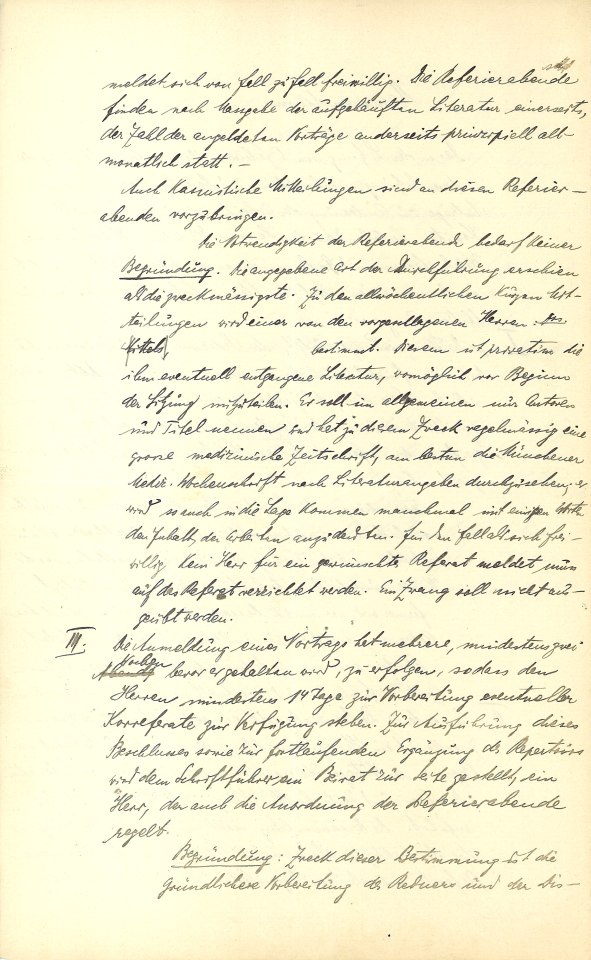 meldet sich von Fall zu Fall freiwillig. Die Referierabende
finden nach Massgabe der aufgelaufenen Literatur einerseits,
der Zahl der angemeldeten Vorträge anderseits prinzipiell all-
monatlich statt. –
Auch kasuistische Mitteilungen sind an diesen Referier-
abenden vorzubringen.
Die Notwendigkeit der Referierabende bedarf keiner
Begründung. Die angegebene Art der Durchführung erschien
als die zweckmässigste. Zu den allwöchentlichen kurzen Mit-
teilungen wird einer von den vorgeschlagenen Herren:
Hittels, bestimmt. Diesem ist privatim die
ihm eventuell entgangene Literatur, womöglich vor Beginn
der Sitzung mitzuteilen. Er soll im allgemeinen nur Autoren
und Titel nennen und hat zu diesem Zweck regelmässig eine
grosse medizinische Zeitschrift, am besten die Münchener
Mediz. Wochenschrift nach Literaturangaben durchzusehen; er
wird so auch in die Lage kommen manchmal mit einigen Worten
den Inhalt der Arbeiten anzudeuten. Für den Fall als sich frei-
willig kein Herr für ein gewünschtes Referat meldet muss
auf das Referat verzichtet werden. Ein Zwang soll nicht aus-
geübt werden.
III. Die Anmeldung eines Vortrags hat mehrere, mindestens zwei
Wochen bevor er gehalten wird, zu erfolgen, sodass den
Herren mindestens 14 Tage zur Vorbereitung eventueller
Korreferate zur Verfügung stehen. Zur Ausführung dieses
Beschlusses sowie zur fortlaufenden Ergänzung des Repertoires
wird dem Schriftführer ein Beirat zur Seite gestellt, ein
Herr, der auch die Anordnung der Referierabende
regelt.
Begründung: Zweck dieser Bestimmung ist die
gründlichere Vorbereitung des Redners und der Dis-